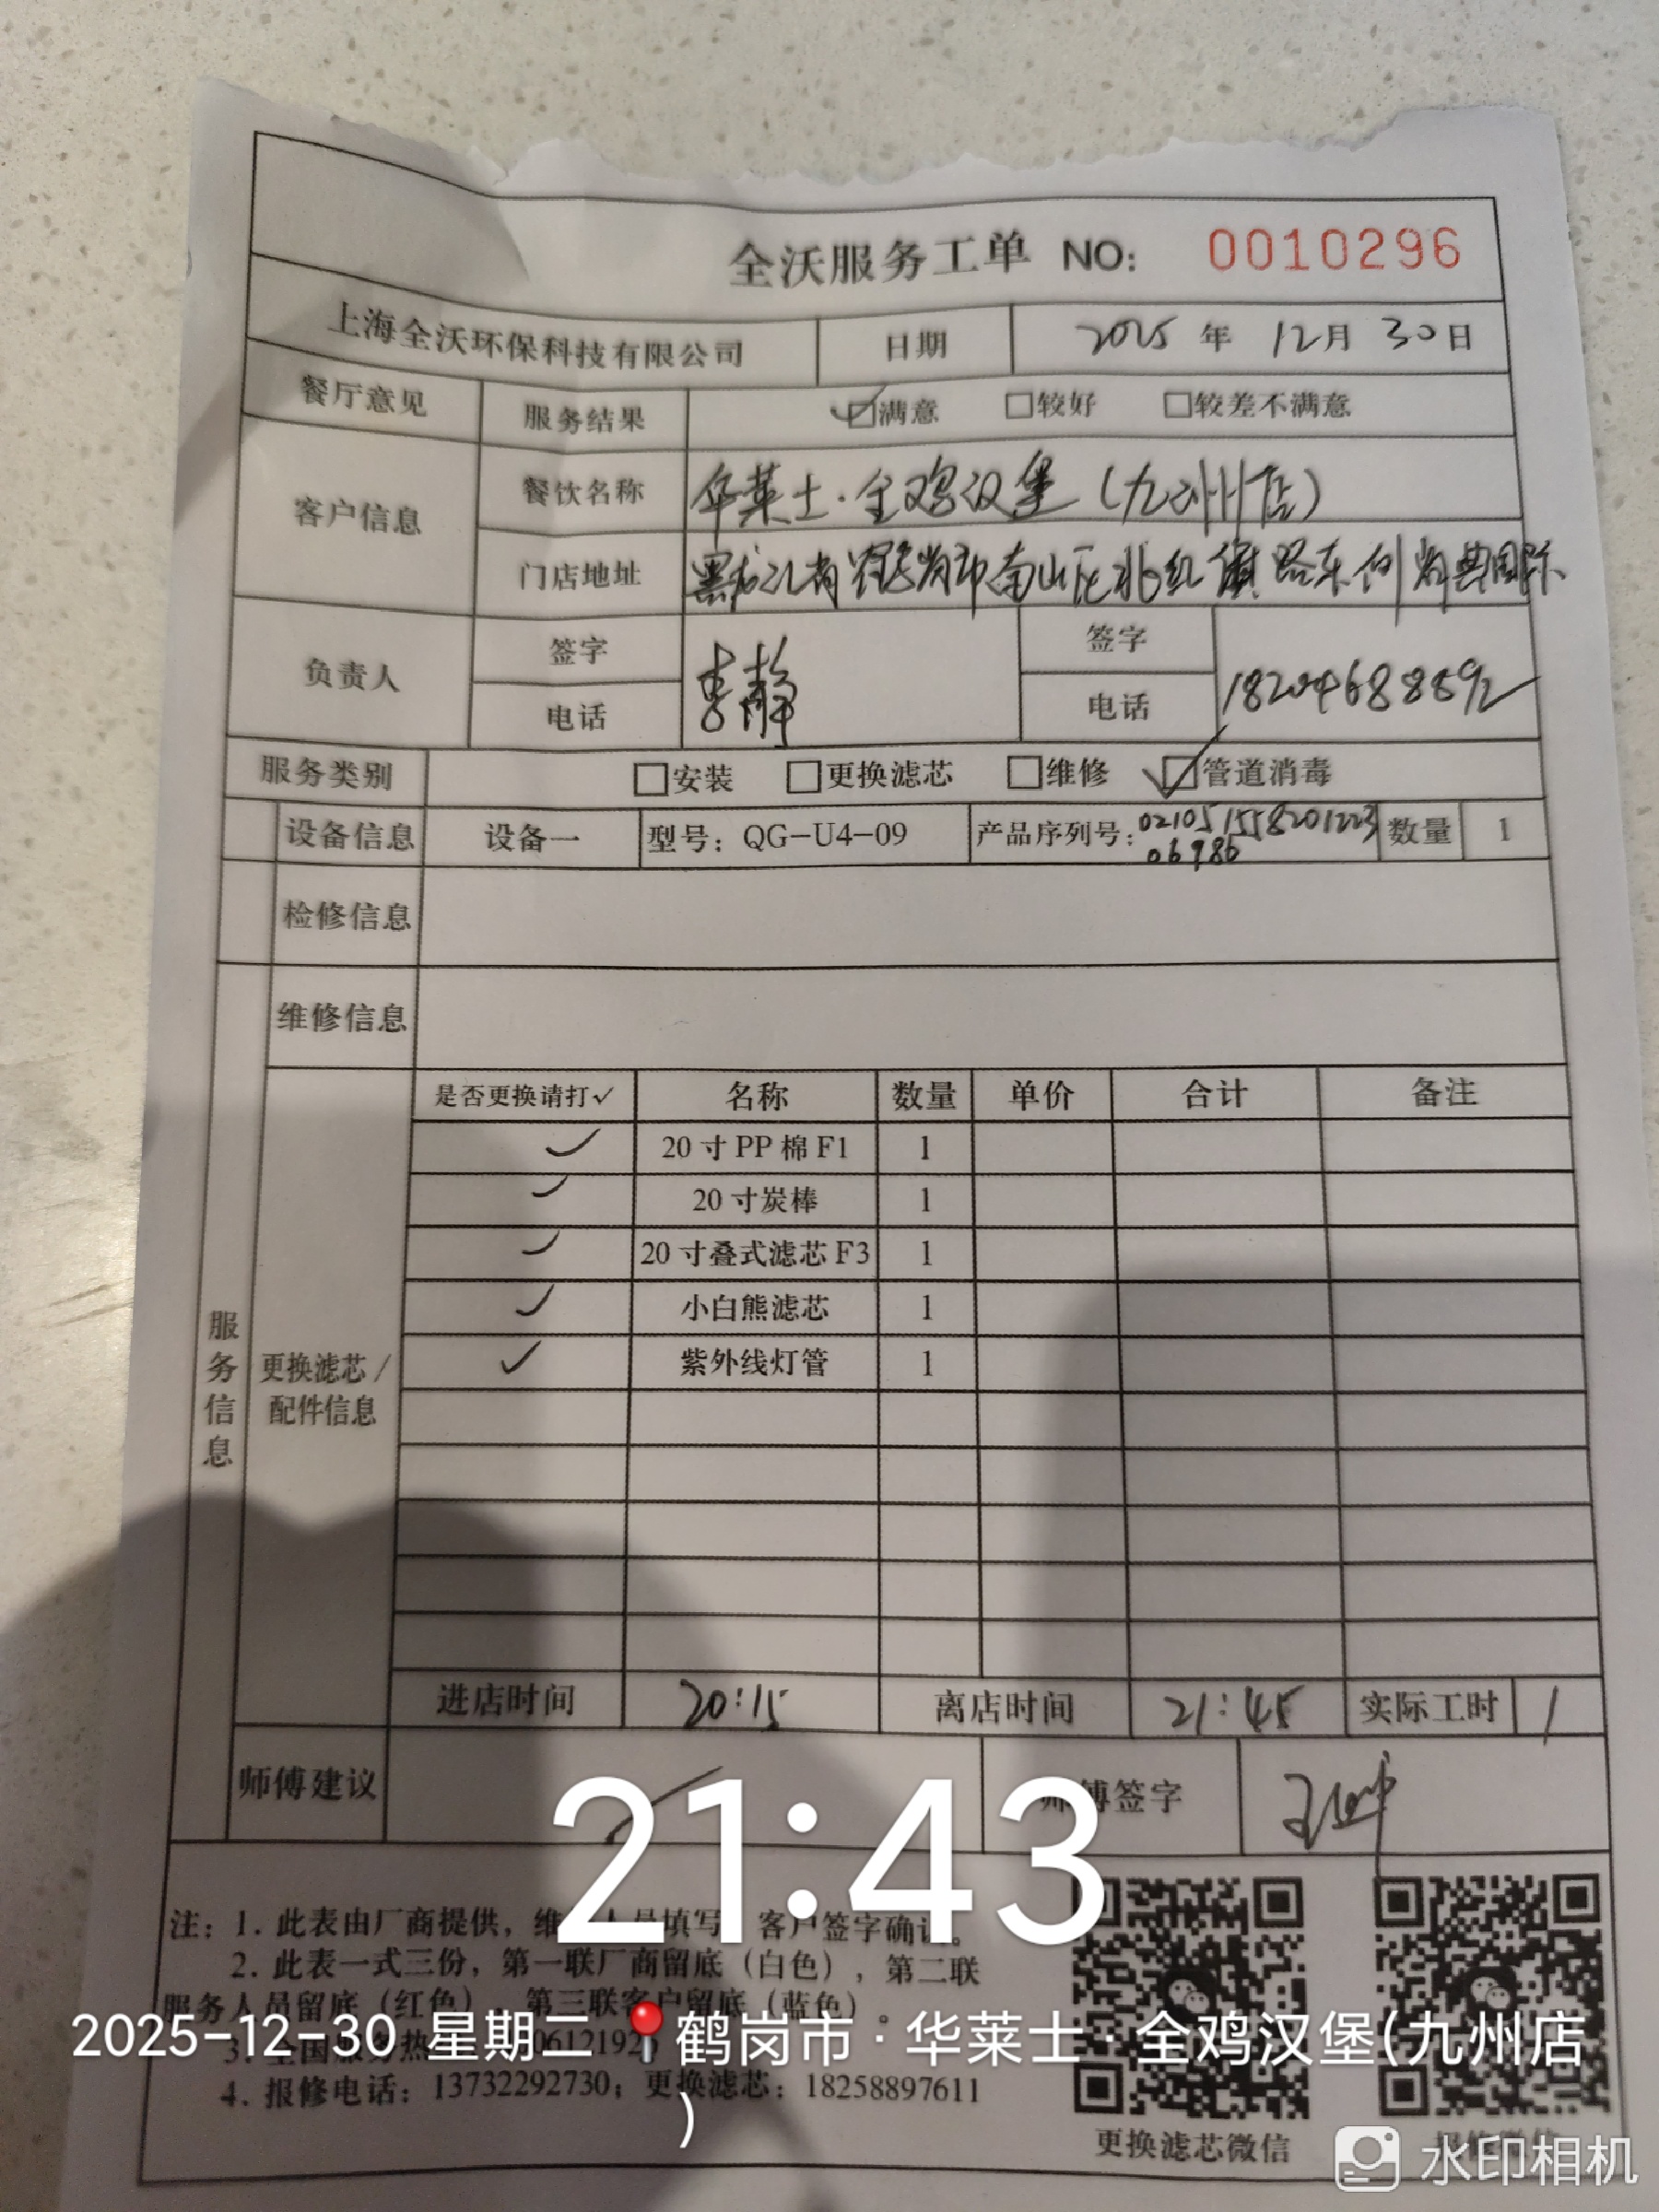 全沃服务工单 NO: 0010296
上海全沃环保科技有限公司 日期 2025 年 12月 30日
餐厅意见 服务结果 ☑满意 □较好 □较差不满意
客户信息 餐饮名称 华莱士·全鸡汉堡(九州店)
门店地址 黑龙江省鹤岗市南山区北红旗路东侧尚典国际
负责人 签字 李静 签字
电话 电话 18204688892
服务类别 □安装 □更换滤芯 □维修 ☑管道消毒
设备信息 设备一 型号: QG-U4-09 产品序列号: 021051558201223 数量 1
06986
检修信息
维修信息
服务信息
更换滤芯/配件信息
是否更换请打✓ 名称 数量 单价 合计 备注
✓ 20寸PP棉F1 1
✓ 20寸炭棒 1
✓ 20寸叠式滤芯F3 1
✓ 小白熊滤芯 1
✓ 紫外线灯管 1
进店时间 20:15 离店时间 21:45 实际工时 1
师傅建议 / 师傅签字
21:43
注: 1. 此表由厂商提供,维 员填写 客户签字确认。
2. 此表一式三份,第一联厂商留底(白色),第二联
服务人员留底(红色),第三联客户留底(蓝色)。
3. 全国服务热
4. 报修电话: 13732292730; 更换滤芯: 18258897611
更换滤芯微信
2025-12-30 星期二 📍鹤岗市·华莱士·全鸡汉堡(九州店
)
水印相机